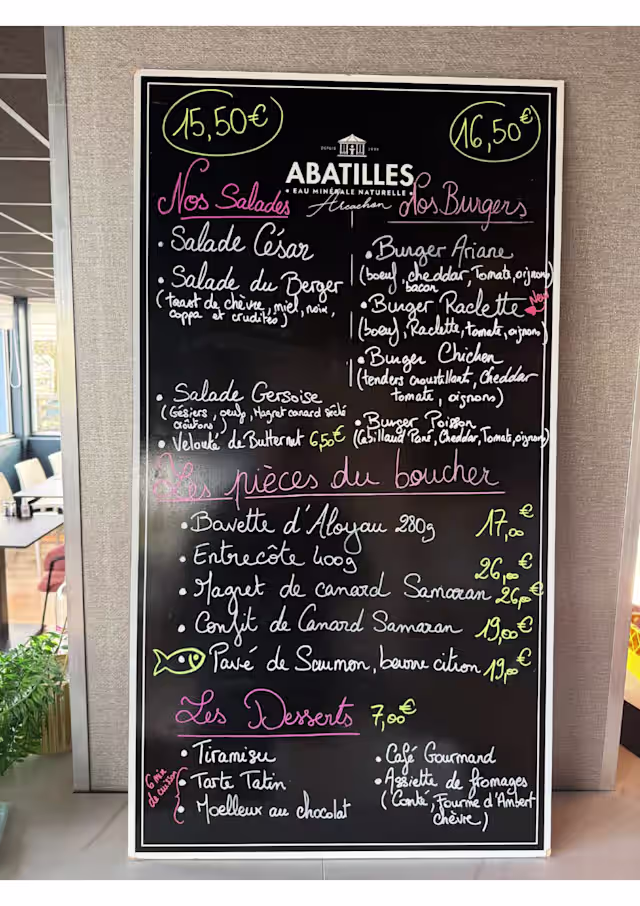 15,50€
16,50€
DEPUIS 1925
ABATILLES
• EAU MINÉRALE NATURELLE •
Arcachon
Nos Salades
• Salade César
• Salade du Berger
(toast de chèvre, miel, noix,
coppa et crudités)
• Salade Gersoise
(Gésiers, oeuf, Magret canard séché
croûtons)
• Velouté de Butternut 6,50€
Nos Burgers
• Burger Ariane
(boeuf, cheddar, Tomate, oignons
bacon
• Burger Raclette New
(boeuf, Raclette, tomate, oignons)
• Burger Chicken
(tenders croustillant, Cheddar
tomate, oignons)
• Burger Poisson
(Cabillaud Pané, Cheddar, Tomate, oignons)
Les pièces du boucher
• Bavette d'Aloyau 280g 17,00€
• Entrecôte 400g 26,00€
• Magret de canard Samaran 26,00€
• Confit de Canard Samaran 19,00€
Pavé de Saumon, beurre citron 19,00€
Les Desserts 7,00€
• Tiramisu
• Tarte Tatin
• Moelleux au chocolat
6 min
de cuisson
• Café Gourmand
• Assiette de fromages
(Comté, Fourme d'Ambert
chèvre)